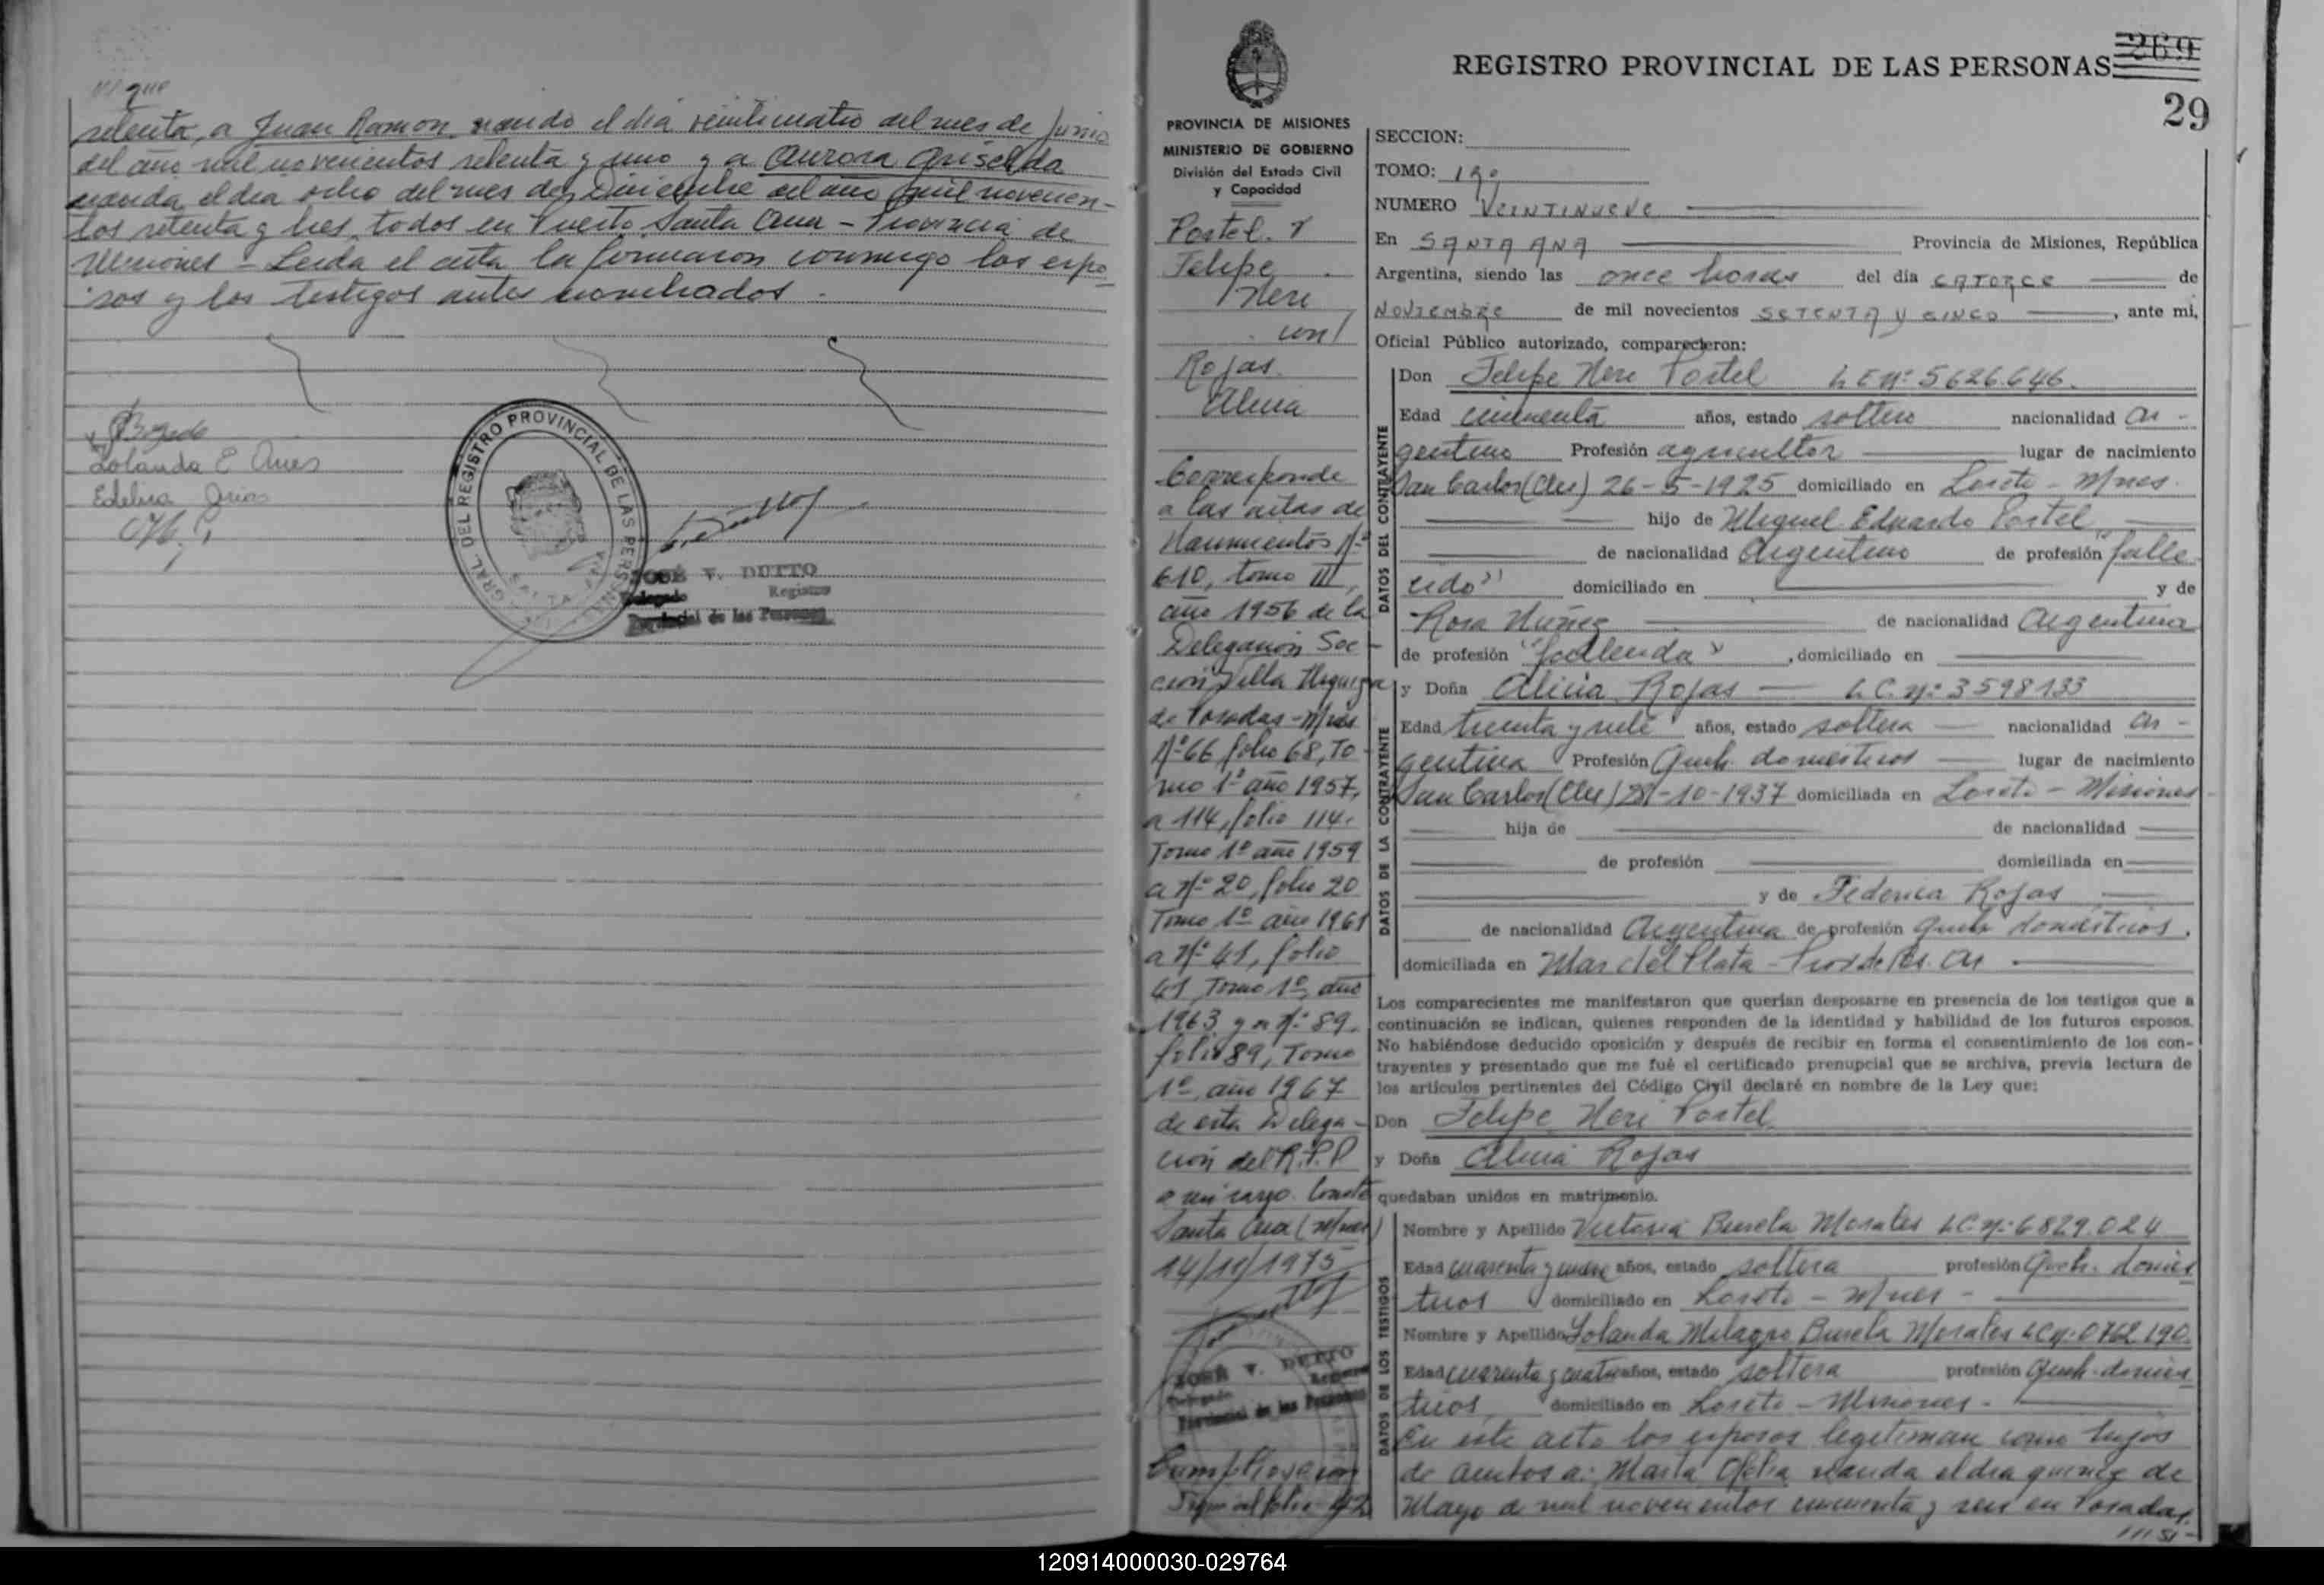 que
setenta, a Juan Ramon nacido el dia veinticuatro del mes de Junio
del año mil novecientos setenta y uno y a Aurora Griselda
nacida el dia ocho del mes de Diciembre del año mil novecien-
tos setenta y tres, todos en Puerto Santa Ana - Provincia de
Misiones - Leida el acta la firmaron conmigo los espo
sos y los testigos antes nombrados.
Yolanda E
Edelira
REGISTRO PROVINCIAL DE LAS PERSONAS
JOSÉ V. DUTTO
Delegado Registro
Provincial de las Personas
REGISTRO PROVINCIAL DE LAS PERSONAS
269
29
PROVINCIA DE MISIONES
MINISTERIO DE GOBIERNO
División del Estado Civil
y Capacidad
Postel
Felipe
Neri
con
Rojas
Alicia
Corresponde
a las actas de
Nacimientos Nº
610, tomo III,
año 1956 de la
Delegación Sec-
ción Villa Urquiza
de Posadas - Mnes
Nº 66 folio 68, To-
mo 1º año 1957,
a 114, folio 114.
Tomo 1º año 1959
a Nº 20, folio 20
Tomo 1º año 1961
a Nº 41, folio
41 Tomo 1º, año
1963 y a Nº 89.
folio 89, Tomo
1º año 1967
de esta Delega-
ción del R.P.P
a mi cargo. Conste
Santa Ana (Mnes)
14/11/1975
JOSÉ V. DUTTO
Delegado Registro
Provincial de las Personas
SECCION:
TOMO: 1º
NUMERO VEINTINUEVE
En SANTA ANA Provincia de Misiones, República
Argentina, siendo las once horas del día CATORCE de
NOVIEMBRE de mil novecientos SETENTA y CINCO, ante mi,
Oficial Público autorizado, comparecieron:
DATOS DEL CONTRAYENTE
Don Felipe Neri Postel L E nº 5626.646.
Edad cincuenta años, estado soltero nacionalidad Ar-
gentino Profesión agricultor lugar de nacimiento
San Carlos (Ctes) 26-5-1925 domiciliado en Loreto - Mnes.
hijo de Miguel Eduardo Postel
de nacionalidad Argentino de profesión "falle-
cido" domiciliado en y de
Rosa Núñez de nacionalidad Argentina
de profesión "fallecida", domiciliado en
DATOS DE LA CONTRAYENTE
y Doña Alicia Rojas — L C. nº 3598133
Edad treinta y siete años, estado soltera nacionalidad Ar-
gentina Profesión Queh. domésticos lugar de nacimiento
San Carlos (Ctes) 28-10-1937 domiciliada en Loreto - Misiones
hija de de nacionalidad
de profesión domiciliada en
y de Federica Rojas
de nacionalidad Argentina de profesión Queh domésticos.
domiciliada en Mar del Plata - Prov de Bs. As
Los comparecientes me manifestaron que querían desposarse en presencia de los testigos que a
continuación se indican, quienes responden de la identidad y habilidad de los futuros esposos.
No habiéndose deducido oposición y después de recibir en forma el consentimiento de los con-
trayentes y presentado que me fué el certificado prenupcial que se archiva, previa lectura de
los artículos pertinentes del Código Civil declaré en nombre de la Ley que:
Don Felipe Neri Postel
y Doña Alicia Rojas
quedaban unidos en matrimonio.
DATOS DE LOS TESTIGOS
Nombre y Apellido Victoria Burela Morales LC. nº 6829.024
Edad cuarenta y años, estado soltera profesión Queh. domés
ticos domiciliado en Loreto - Mnes -
Nombre y Apellido Yolanda Milagro Burela Morales LC nº 0762190
Edad cuarenta y cuatro años, estado soltera profesión Queh. domés
ticos domiciliado en Loreto - Misiones -
En este acto los esposos legitiman como hijos
de ambos a: Marta Ofelia nacida el dia quince de
Mayo de mil novecientos cincuenta y seis en Posadas.
120914000030-029764